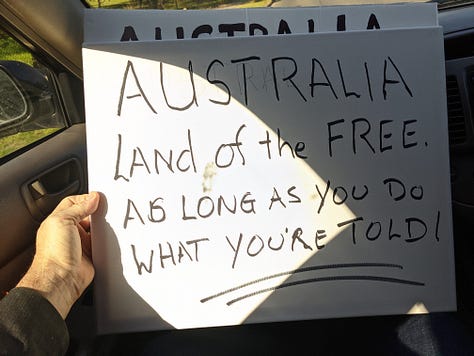 AUSTRALIA
AUSTRALIA
LAND of the FREE.
AS LONG AS YOU DO
WHAT YOU'RE TOLD!